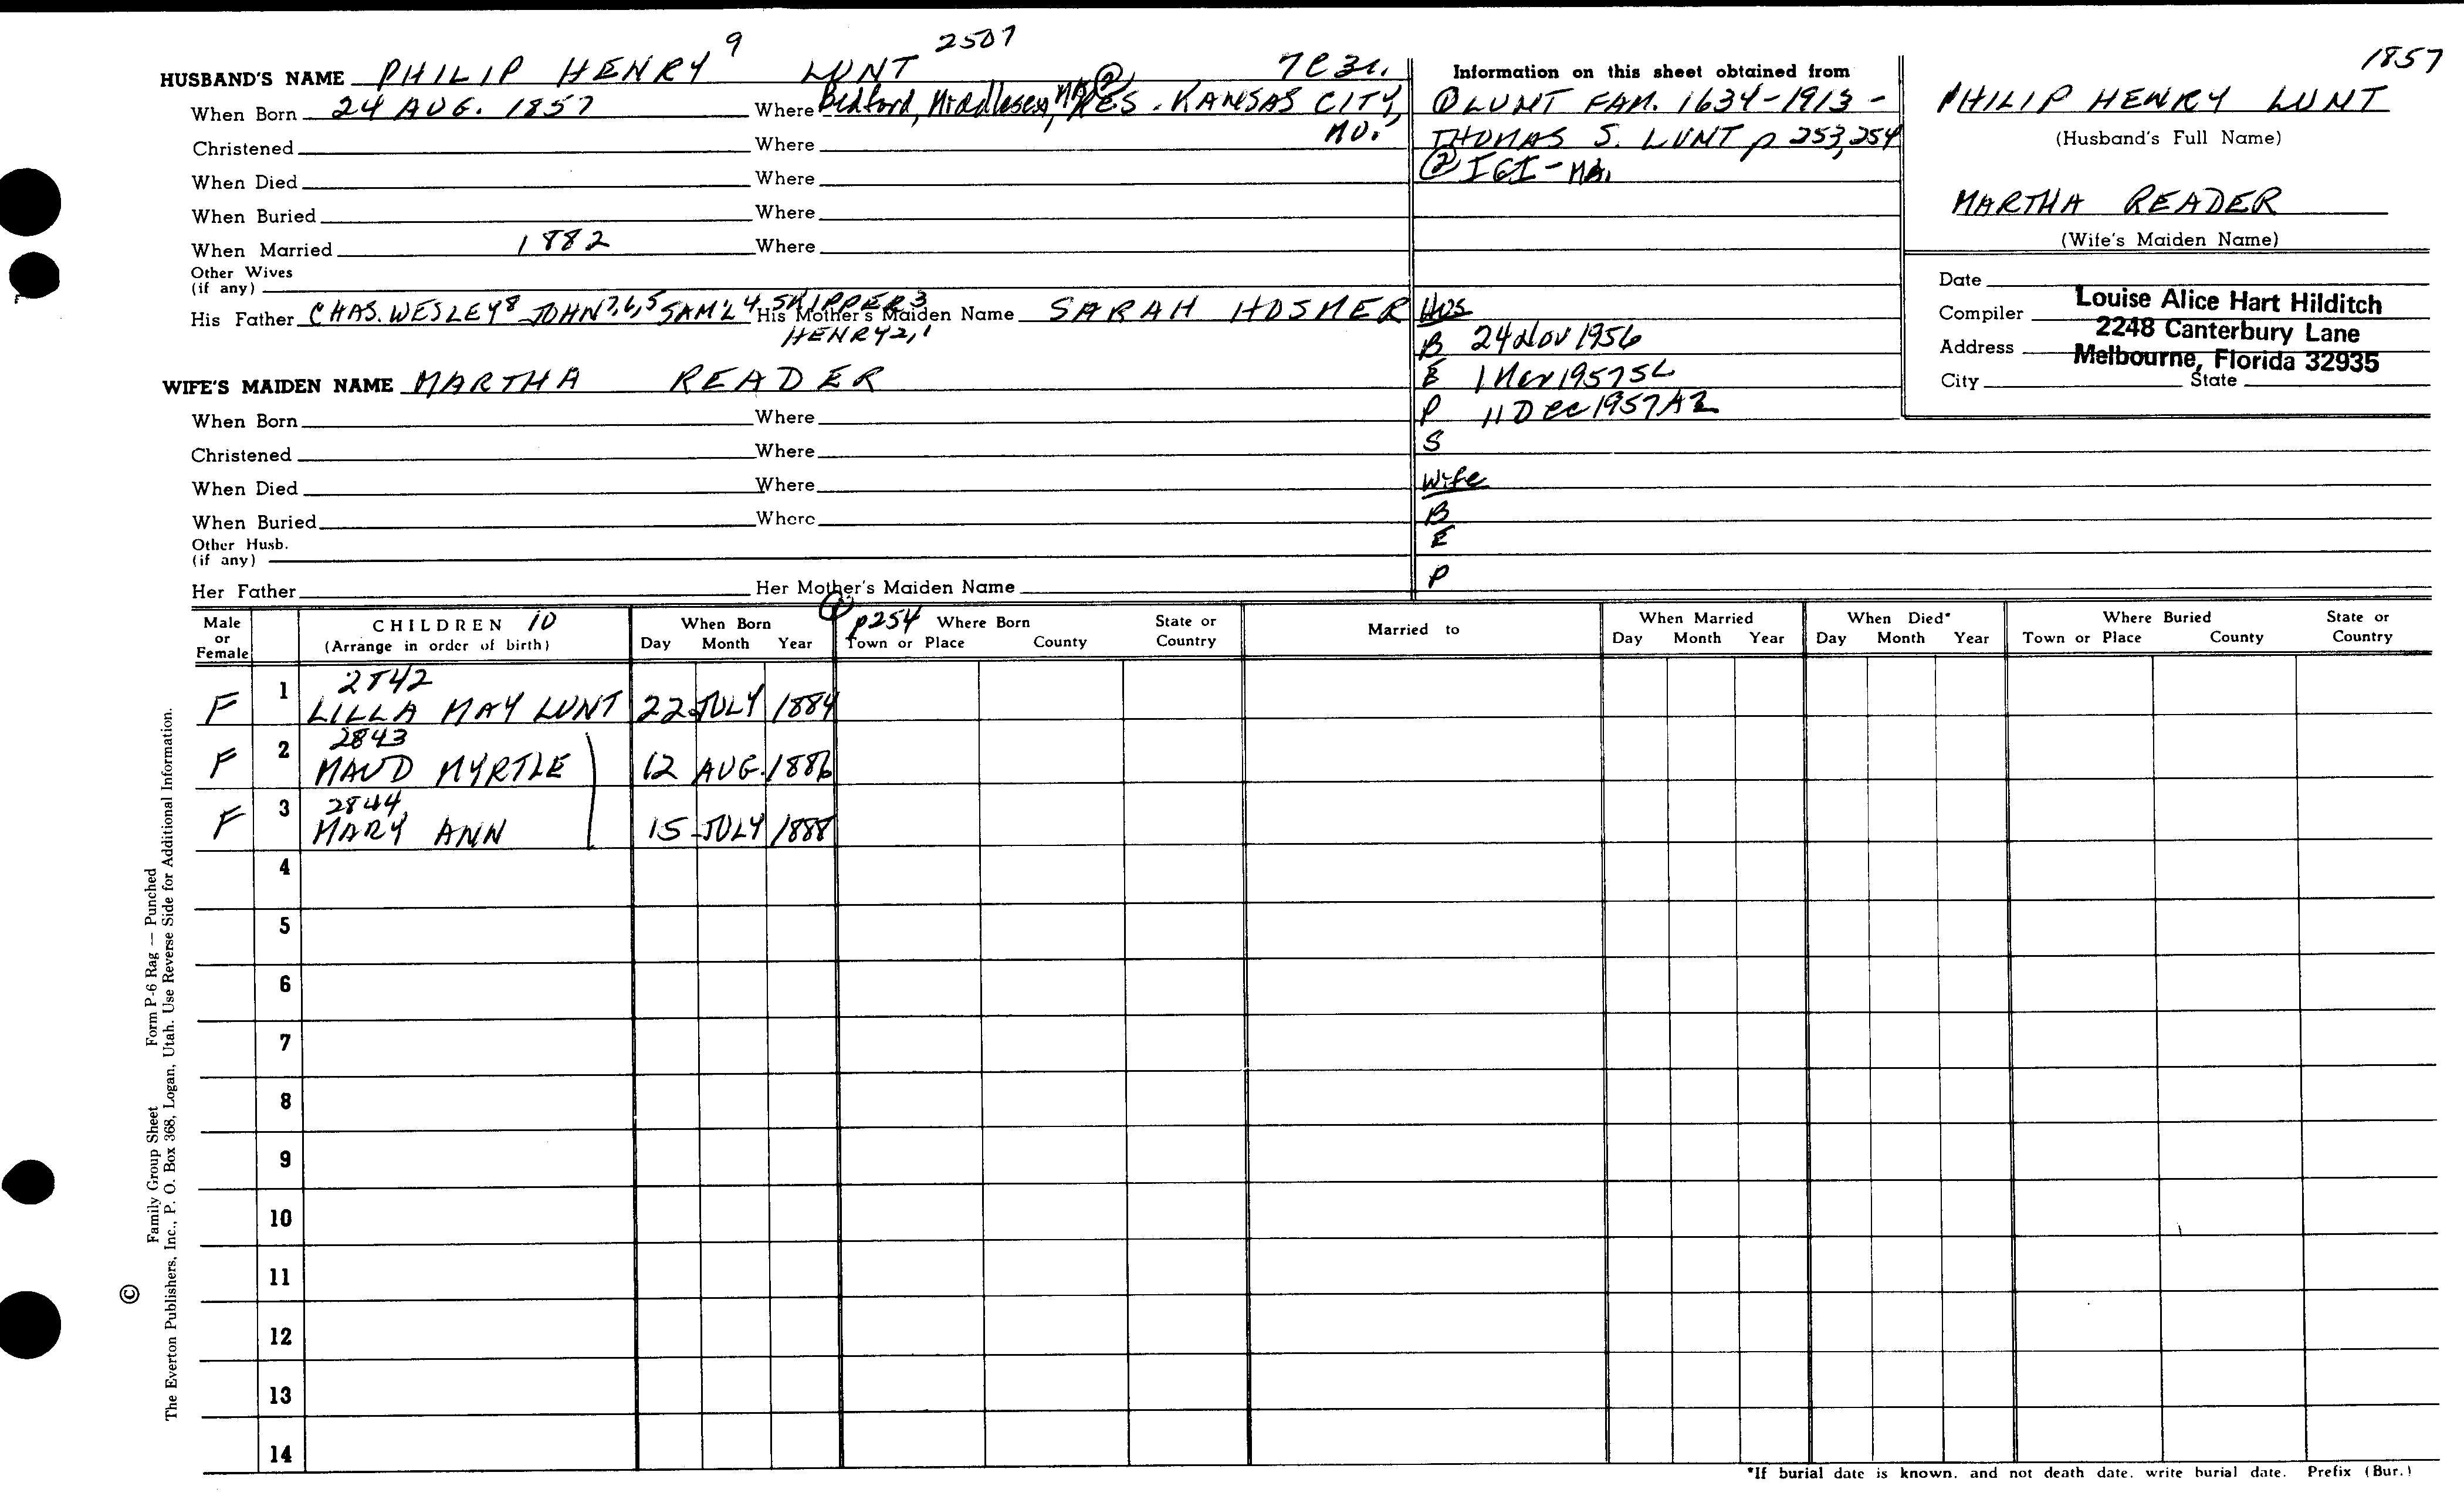 HUSBAND'S NAME PHILIP HENRY 9 LUNT 2507
When Born 24 AUG. 1857 Where Bedford, Middlesex, MA ② RES. KANSAS CITY, MO.
Christened Where
When Died Where
When Buried Where
When Married 1882 Where
Other Wives
(if any)
His Father CHAS. WESLEY 8 JOHN 7,6,5 SAM'L 4 SKIPPER 3 HENRY 2,1 His Mother's Maiden Name SARAH HOSMER
WIFE'S MAIDEN NAME MARTHA READER
When Born Where
Christened Where
When Died Where
When Buried Where
Other Husb.
(if any)
Her Father Her Mother's Maiden Name
Information on this sheet obtained from
① LUNT FAM. 1634-1913 -
THOMAS S. LUNT p 253, 254
② IGI - MA.
HUS
B 24 Nov 1956
E 1 Mar 1957 SL
P 11 Dec 1957 AZ
S
Wife
B
E
P
1857
PHILIP HENRY LUNT
(Husband's Full Name)
MARTHA READER
(Wife's Maiden Name)
Date
Compiler Louise Alice Hart Hilditch
Address 2248 Canterbury Lane
Melbourne, Florida 32935
City State
Male or Female
CHILDREN 10
(Arrange in order of birth)
When Born
Day Month Year
① p254 Where Born
Town or Place County State or Country
Married to
When Married
Day Month Year
When Died*
Day Month Year
Where Buried
Town or Place County State or Country
F 1 2842 LILLA MAY LUNT 22 JULY 1884
F 2 2843 MAUD MYRTLE 12 AUG. 1886
F 3 2844 MARY ANN 15 JULY 1888
4
5
6
7
8
9
10
11
12
13
14
*If burial date is known, and not death date, write burial date. Prefix (Bur.)
© Family Group Sheet Form P-6 Rag — Punched
The Everton Publishers, Inc., P. O. Box 368, Logan, Utah. Use Reverse Side for Additional Information.